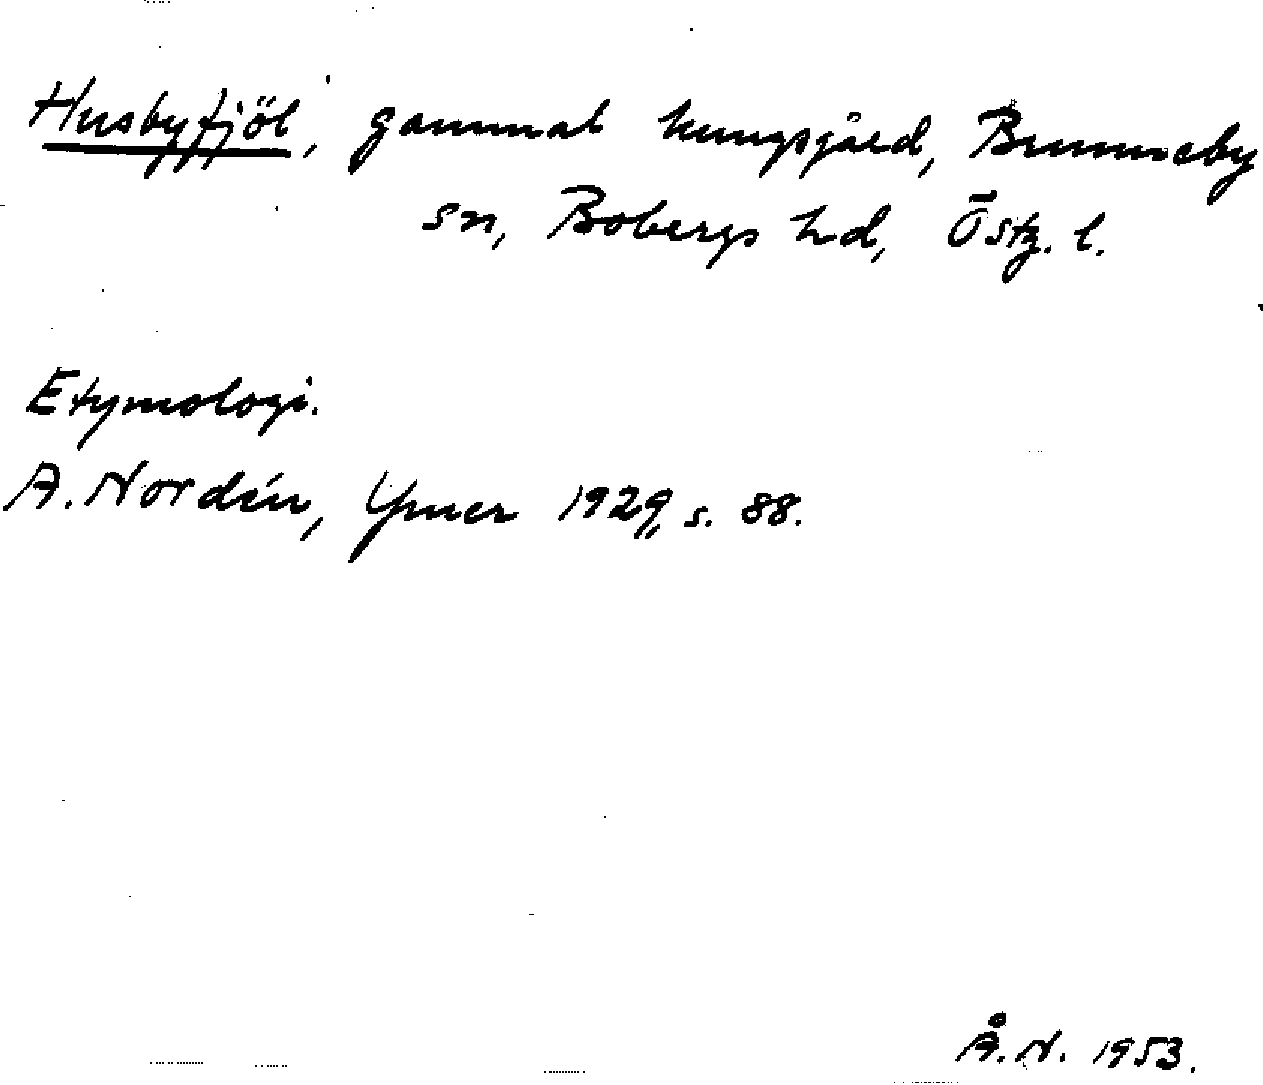 Husbyfjöl, gammal kungsgård, Brunneby
sn, Bobergs hd, Östg. l.
Etymologi.
A. Nordén, Ymer 1929, s. 88.
Å. N. 1953.